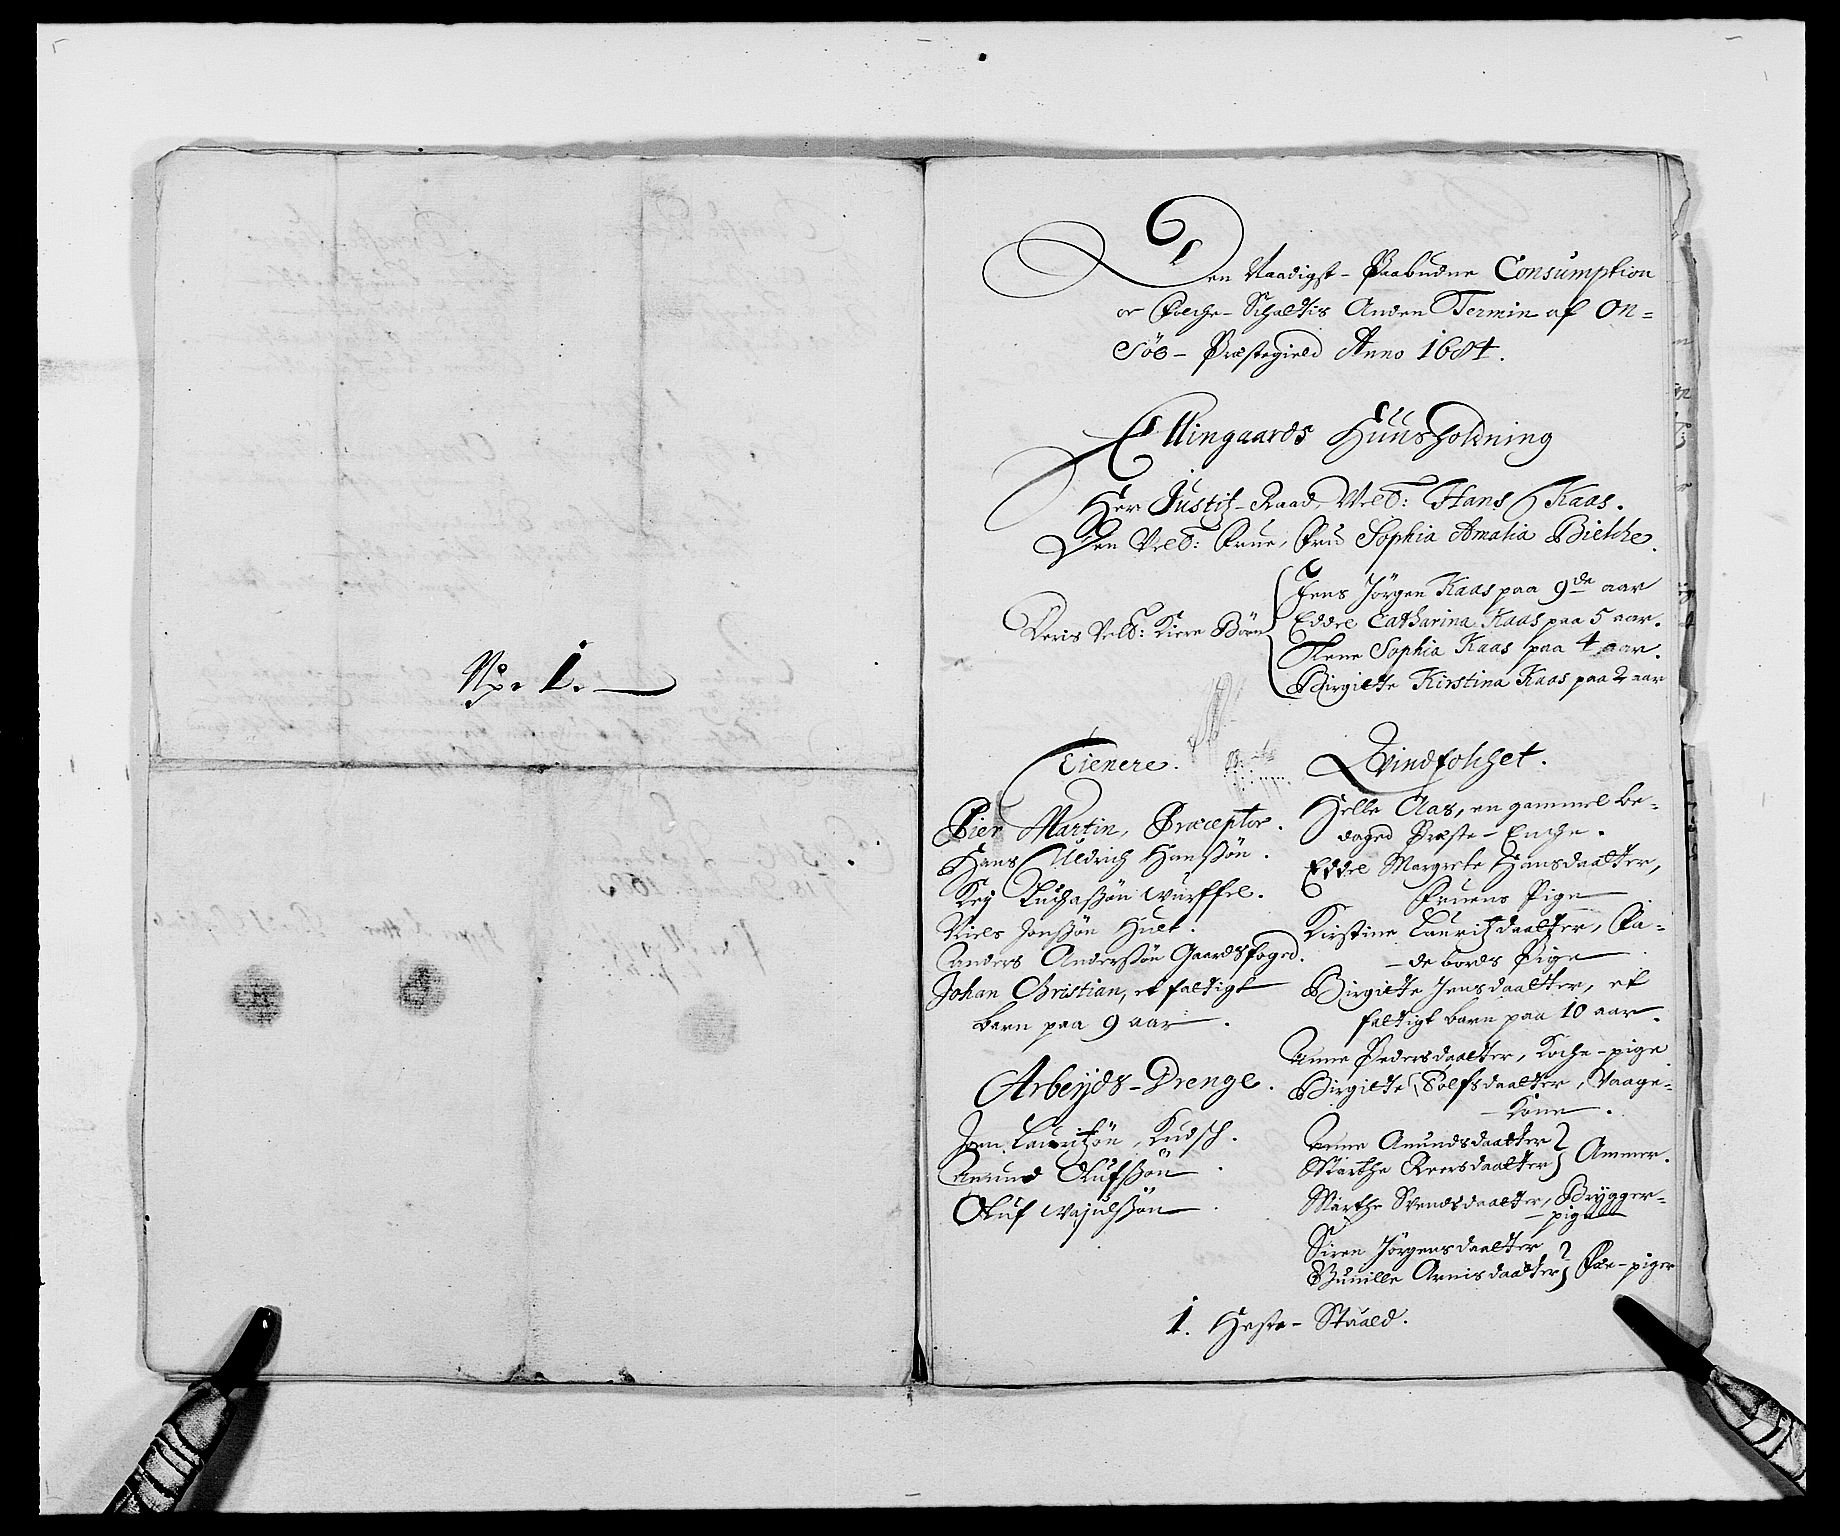 No. 1.
Den Naadigst-Paabudne Consumption
oc Folche-Schattis Anden Termin af On-
søe-Præstegield Anno 1684.
Ellingaards Huusholdning
Her Justitz-Raad, Velb: Hans Kaas.
Den Velb: Frue, Fru Sophia Amalia Bielche.
Deris Velb: Kiere Børn
Jens Jörgen Kaas paa 9de aar
Eddel Catharina Kaas paa 5 aar.
Lene Sophia Kaas paa 4 aar.
Birgitte Kirstina Kaas paa 2 aar
Tienere.
Pier Martin, Præceptor.
Hans Uldrich Hanssøn.
Kej Luchassøn Wurffel.
Niels Jonssøn Huet.
Anders Anderssøn Gaardsfoged.
Johan Christian, et fattigt
barn paa 9 aar.
Arbeyds-Drenge.
Joen Lauritzøn, Kudsch.
Amund Olufssøn
Oluf
Qvindfolchet.
Helle Aas, en gammel be-
daged Præste-Enche.
Eddel Margrete Hansdaatter,
Fruens Pige
Kirstine Lauritzdaatter, Fa-
deburds Pige
Birgitte Jensdaatter, et
fattigt barn paa 10 aar.
Anne Pedersdaatter, Koche-pige
Birgitte Rolfsdaatter, Vaage-
Kone.
Anne Amundsdaatter
Marthe Reersdaatter } Ammer.
Marthe Svendsdaatter, Brygger-
pige
Siren Jörgensdaatter
Gunille Arnisdaatter } Fæe-piger
1. Heste-Staald.